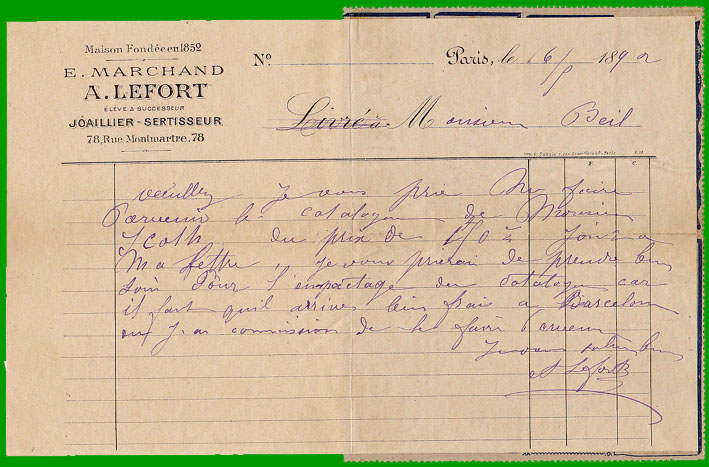 Maison Fondée en 1852
E. MARCHAND
A. LEFORT
ÉLÈVE & SUCCESSEUR
JOAILLIER-SERTISSEUR
78, Rue Montmartre, 78
No
Paris, le 16/5 1892
Livré à Monsieur Beil
veuillez je vous prie me faire
Parvenir le catalogue de Monsieur
du prix de
Ma lettre, je vous prierai de prendre bien
soin Pour l'empactage du Catalogue car
il faut qu'il arrive bien frais a Barcelone
ou J'ai commission de le faire Parvenir
Je vous salue bien
A Lefort